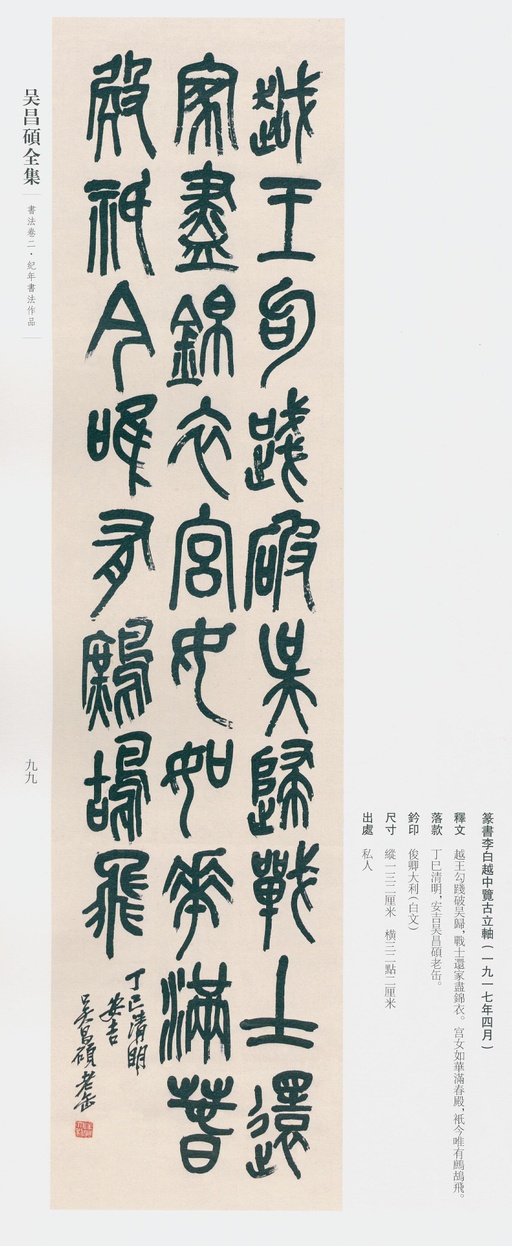 篆書李白越中覽古立軸（一九一七年四月）
釋文 越王勾踐破吴歸，戰士還家盡錦衣。宫女如華滿春殿，衹今唯有鷓鴣飛。
落款 丁巳清明，安吉吴昌碩老缶。
鈐印 俊卿大利（白文）
尺寸 縱一三二厘米 橫三二點二厘米
出處 私人
越王句踐破吴歸戰士還
家盡錦衣宫女如華滿萅
殿衹今唯有鷓鴣飛
丁巳清明
安吉
吴昌碩老缶
吴昌碩全集
書法卷二·紀年書法作品
九九